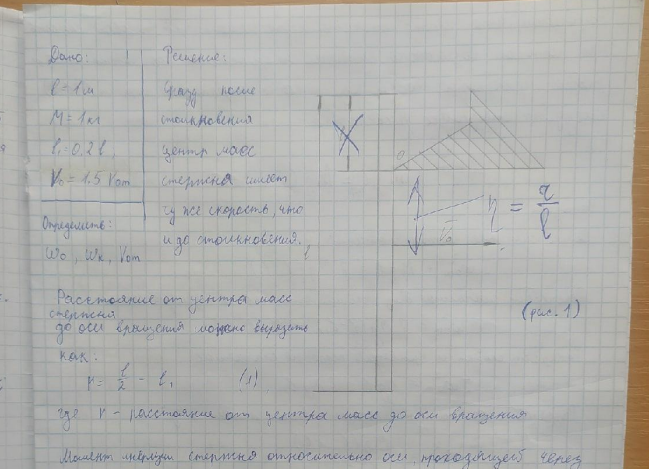 Дано:
l = 1 м
M = 1 кг
l₁ = 0.2 l
V₀ = 1.5 Vот
Определить:
ω₀, ωк, Vот
Решение:
Сразу после
столкновения
центр масс
стержня имеет
ту же скорость, что
и до столкновения.
0
η = r/l
V₀
l
(рис. 1)
Расстояние от центра масс
стержня
до оси вращения можно выразить
как:
r = l/2 - l₁ (1)
где r - расстояние от центра масс до оси вращения
Момент инерции стержня относительно оси, проходящей через